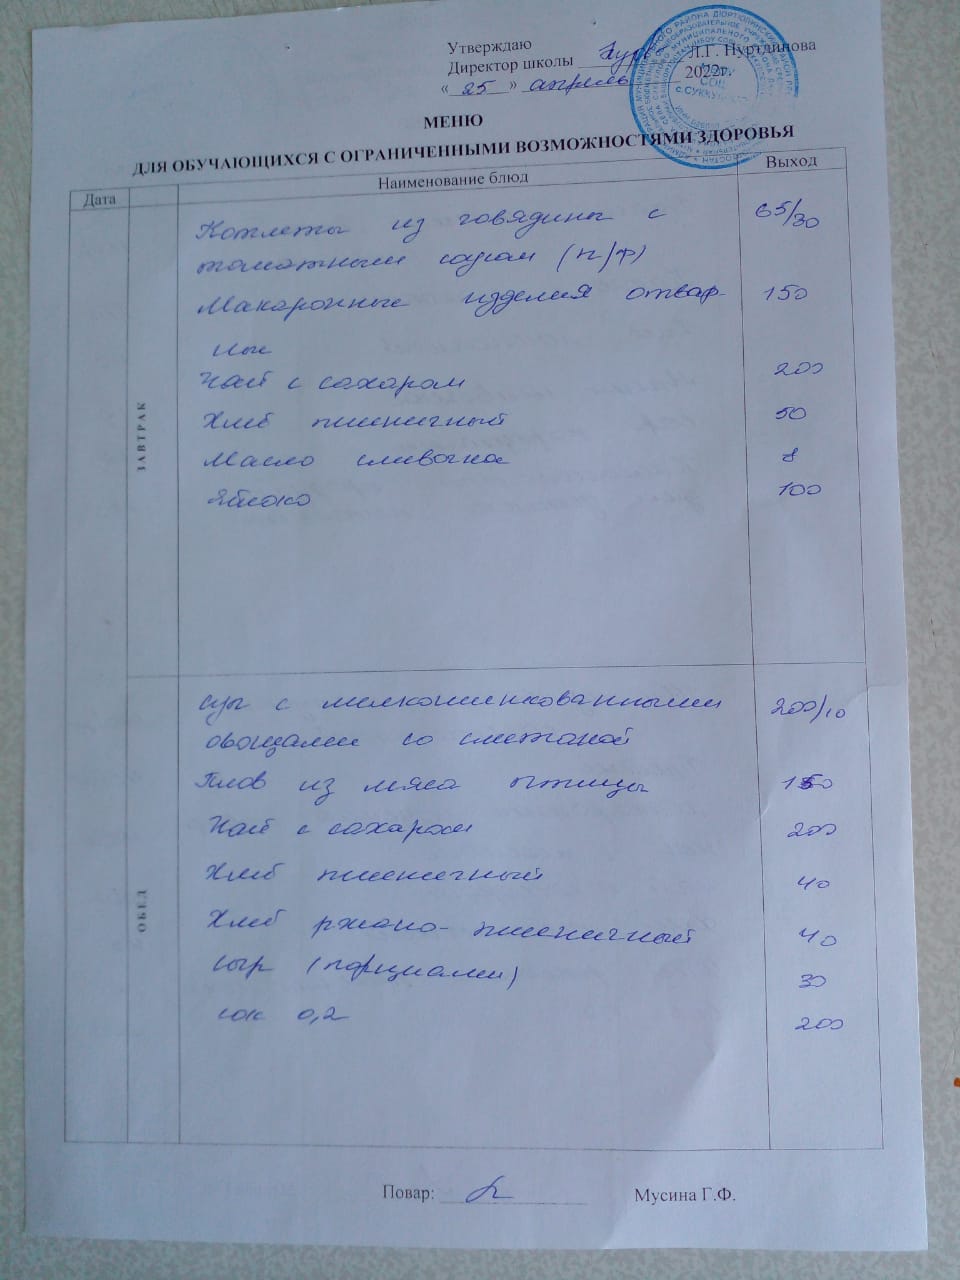 Утверждаю
Директор школы Л.Г. Нуртдинова
« 25 » апрель 2022г.
МЕНЮ
ДЛЯ ОБУЧАЮЩИХСЯ С ОГРАНИЧЕННЫМИ ВОЗМОЖНОСТЯМИ ЗДОРОВЬЯ
Дата Наименование блюд Выход
ЗАВТРАК
Котлеты из говядины с 65/30
томатным соусом (п/ф)
Макаронные изделия отвар- 150
ные
Чай с сахаром 200
Хлеб пшеничный 50
Масло сливочное 8
Яблоко 100
ОБЕД
суп с мелкошинкованными 200/10
овощами со сметаной
Плов из мяса птицы 150
Чай с сахаром 200
Хлеб пшеничный 40
Хлеб ржано-пшеничный 40
сыр (порциями) 30
сок 0,2 200
Повар: Мусина Г.Ф.